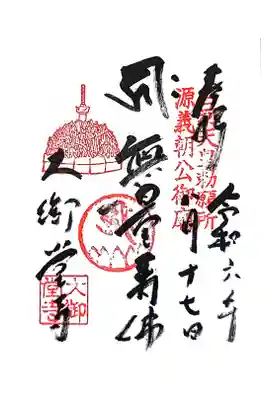 奉拝
令和六年
月十七日
源義朝公御廟
無量寿佛
大御堂寺
大御
堂寺